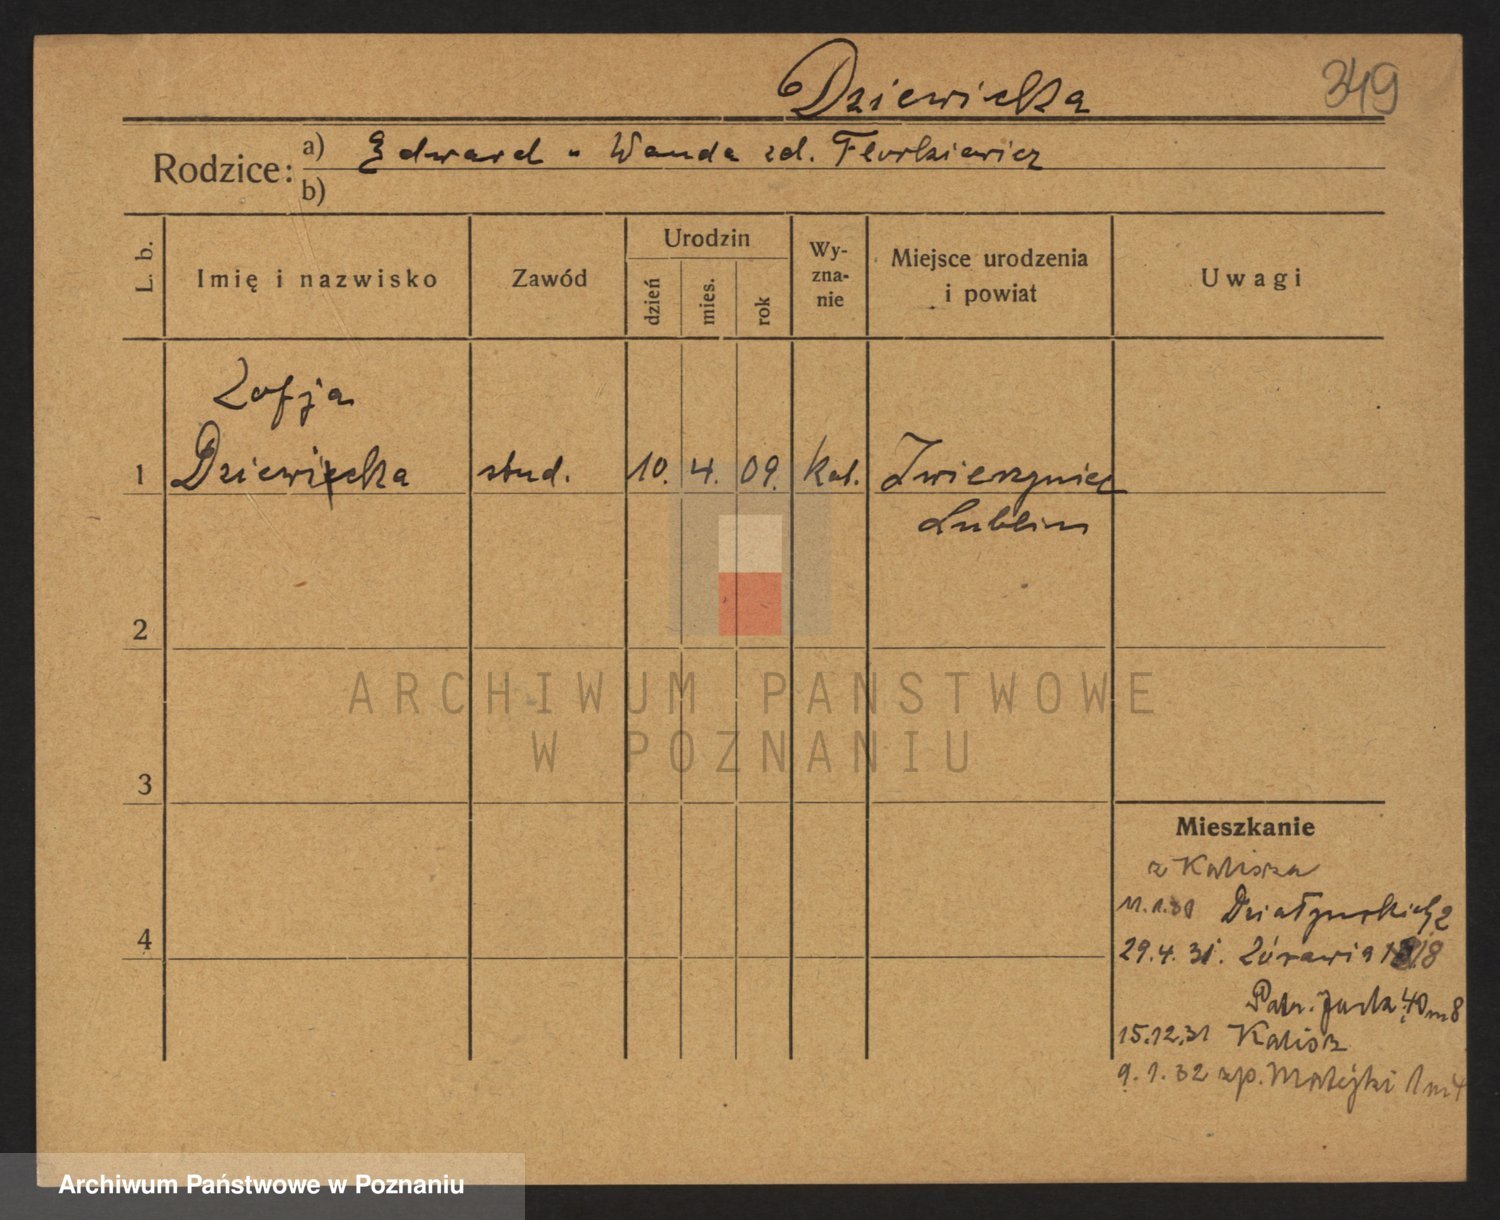 Dziewicka 349
Rodzice: a) Edward - Wanda zd. Florkiewicz
b)
L. b. Imię i nazwisko Zawód Urodzin dzień mies. rok Wy-zna-nie Miejsce urodzenia i powiat Uwagi
Zofja
1 Dziewicka stud. 10. 4. 09. kat. Zwierzyniec
Lublin
2
3
4
Mieszkanie
z Kalisza
11.1.31 Działyńskich 2
29.4.31. Żórawia
Patr. Jacka 40 m 8
15.12.31 Kalisz
9.1.32 zp. Matejki 1 m 4
ARCHIWUM PAŃSTWOWE
W POZNANIU
Archiwum Państwowe w Poznaniu